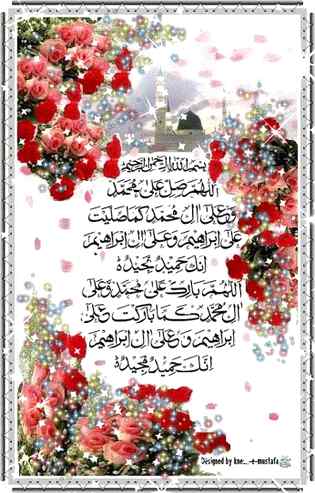 بسم الله الرحمن الرحيم
اللهم صل على محمد
وعلى ال محمد كما صليت
على ابراهيم وعلى ال ابراهيم
انك حميد مجيد
اللهم بارك على محمد وعلى
ال محمد كما باركت على
ابراهيم وعلى ال ابراهيم
انك حميد مجيد
Designed by -e-mustafa